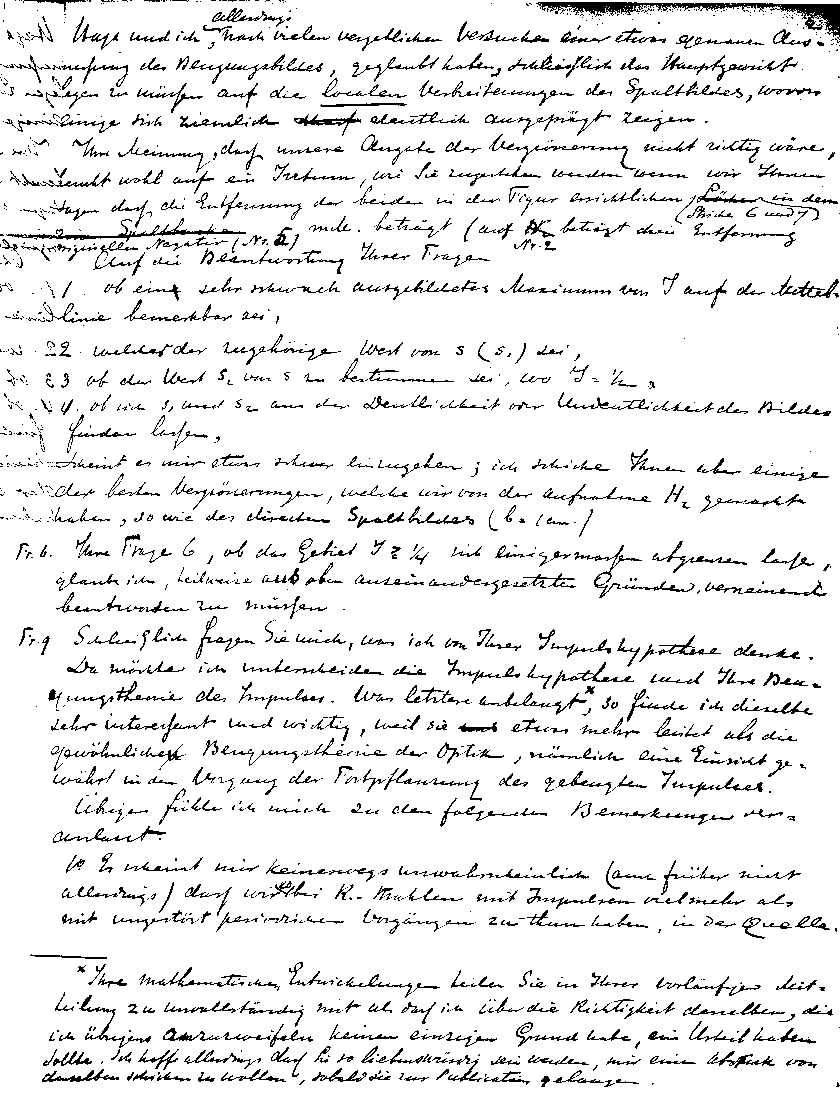 allerdings
Haga und ich, nach vielen vergeblichen Versuchen einer etwas genauen Aus-
messung des Beugungsbildes, geglaubt haben, schliesslich das Hauptgewicht
legen zu müssen auf die localen Verbreiterungen des Spaltbildes, wovon
einige sich ziemlich deutlich ausgeprägt zeigen.
Ihre Meinung, dass unsere Angabe der Vergrösserung nicht richtig wäre,
beruht wohl auf ein Irrtum, wie Sie zugestehen werden wenn wir Ihnen
sagen dass die Entfernung der beiden in der Figur ersichtlichen Löcher in dem
(Striche 6 und 7)
originellen Negativ (Nr. 5) mm. beträgt (auf Nr. 2 beträgt diese Entfernung
Auf die Beantwortung Ihrer Fragen
1 ob eine sehr schwach ausgebildetes Maximum von J auf der Mittel-
linie bemerkbar sei,
2 welches der zugehörige Wert von s (s₁) sei,
3 ob der Wert s₂ von s zu bestimmen sei, wo J = 1/2,
4 ob sich s₁ und s₂ aus der Deutlichkeit oder Undeutlichkeit des Bildes
finden lassen,
scheint es mir etwas schwer einzugehen; ich schicke Ihnen aber einige
der besten Vergrösserungen, welche wir von der Aufnahme H₂ gemacht
haben, so wie des directen Spaltbildes (b = 1 cm.)
Fr. 6. Ihre Frage 6, ob das Gebiet J ≥ 1/4 sich einigermassen abgrenzen lasse,
glaube ich, teilweise aus oben auseinandergesetzten Gründen, verneinend
beantworten zu müssen.
Fr. 9 Schliesslich fragen Sie mich, was ich von Ihrer Impulshypothese denke.
Da möchte ich unterscheiden die Impulshypothese und Ihre Beu-
gungstheorie des Impulses. Was letztere anbelangt*, so finde ich dieselbe
sehr interessant und wichtig, weil sie etwas mehr leistet als die
gewöhnliche Beugungstheorie der Optik, nämlich eine Einsicht ge-
währt in den Vorgang der Fortpflanzung des gebeugten Impulses.
Übrigens fühle ich mich zu den folgenden Bemerkungen ver-
anlasst.
1º Es scheint mir keineswegs unwahrscheinlich (auch früher nicht
allerdings) dass wir bei R.-strahlen mit Impulsen vielmehr als
mit ungestört periodischen Vorgängen zu thun haben, in der Quelle.
* Ihre mathematischen Entwickelungen teilen Sie in Ihrer vorläufigen Mit-
teilung zu unvollständig mit als dass ich über die Richtigkeit derselben, die
ich übrigens anzuzweifeln keinen einzigen Grund habe, ein Urteil haben
sollte. Ich hoffe allerdings dass Sie so liebenswürdig sein werden, mir einen Abdruck von
derselben schicken zu wollen, sobald sie zur Publication gelangen.